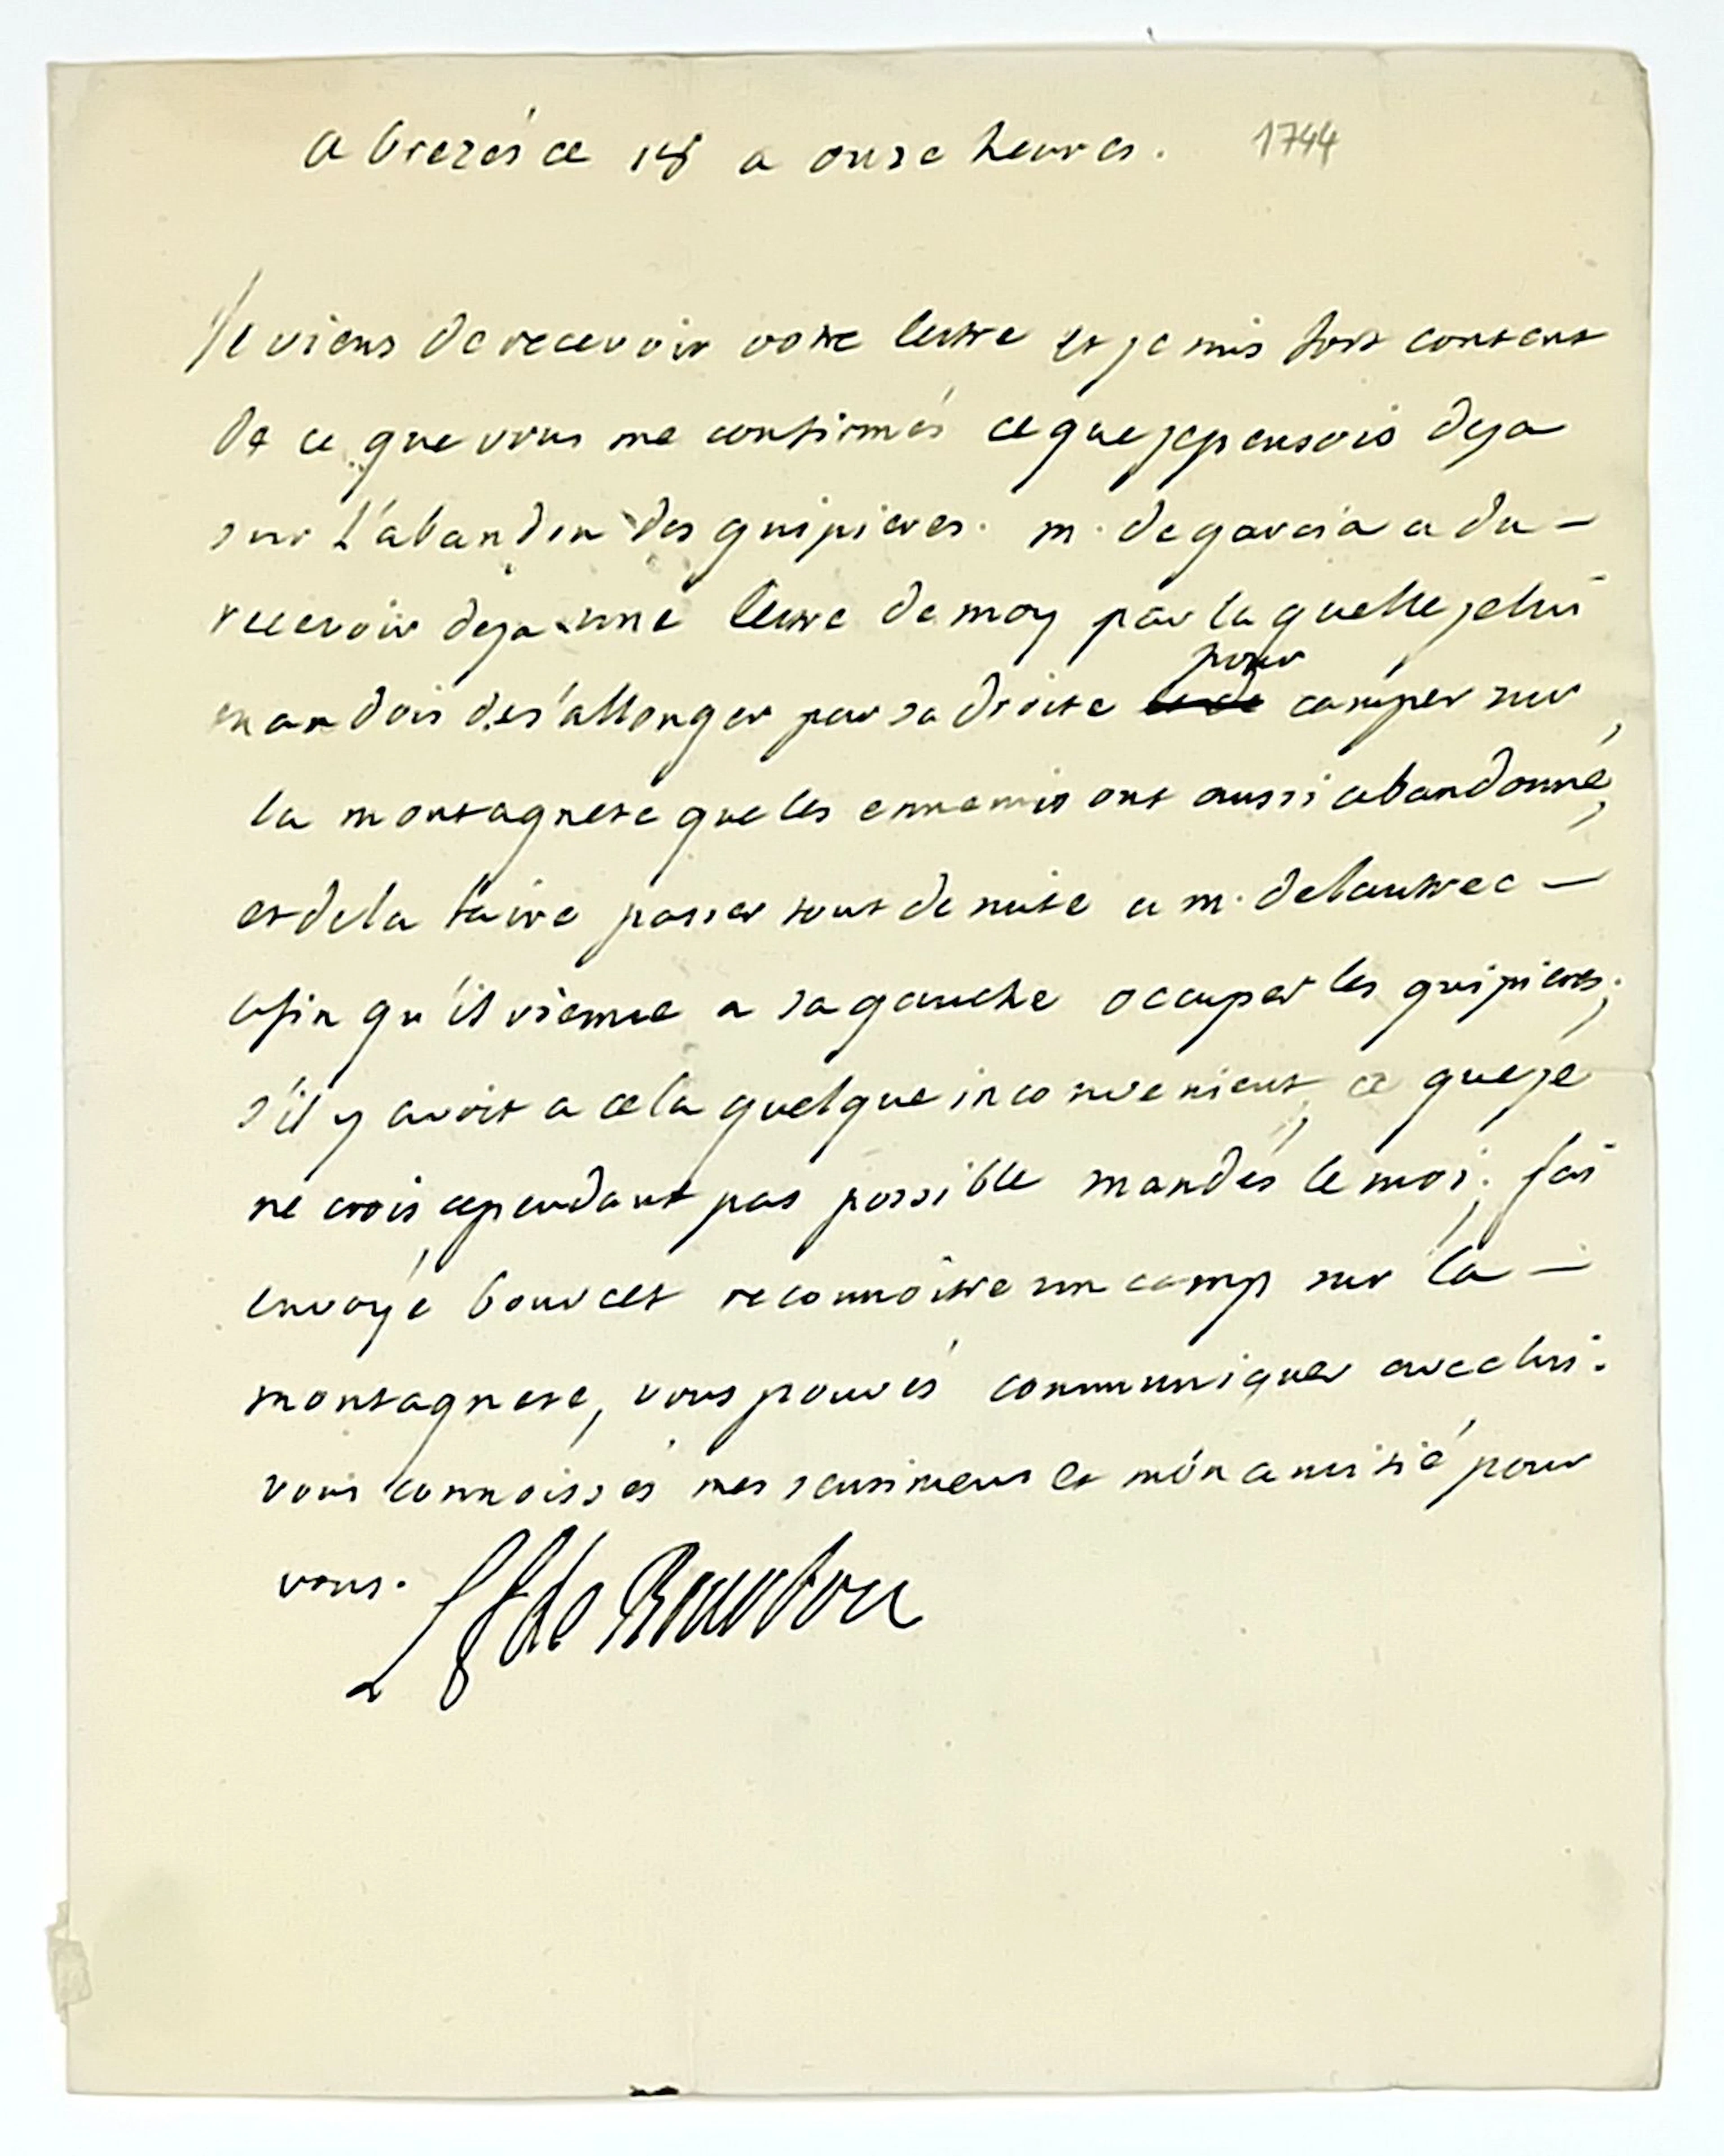 a brezés ce 18 a onse heures. 1744
Je viens de recevoir votre lettre et je suis fort content
de ce que vous me confirmés ce que je pensois deja
sur l'abandon des guipieres. m. de garcia a du -
recevoir deja une lettre de moy par laquelle je lui
mandois de s'allonger par sa droite pour camper sur
la montagnete que les ennemis ont aussi abandonné,
et de la faire passer tout de suite a m. de lautrec -
afin qu'il vienne a sa gauche occuper les guipieres;
s'il y avoit a cela quelque inconvenient, ce que je
ne crois cependant pas possible mandés le moi; j'ai
envoyé bourcet reconnoitre un camp sur la -
montagnete, vous pouvés communiquer avec lui.
vous connoissés mes sentimens et mon amitié pour
vous. L f de Bourbon